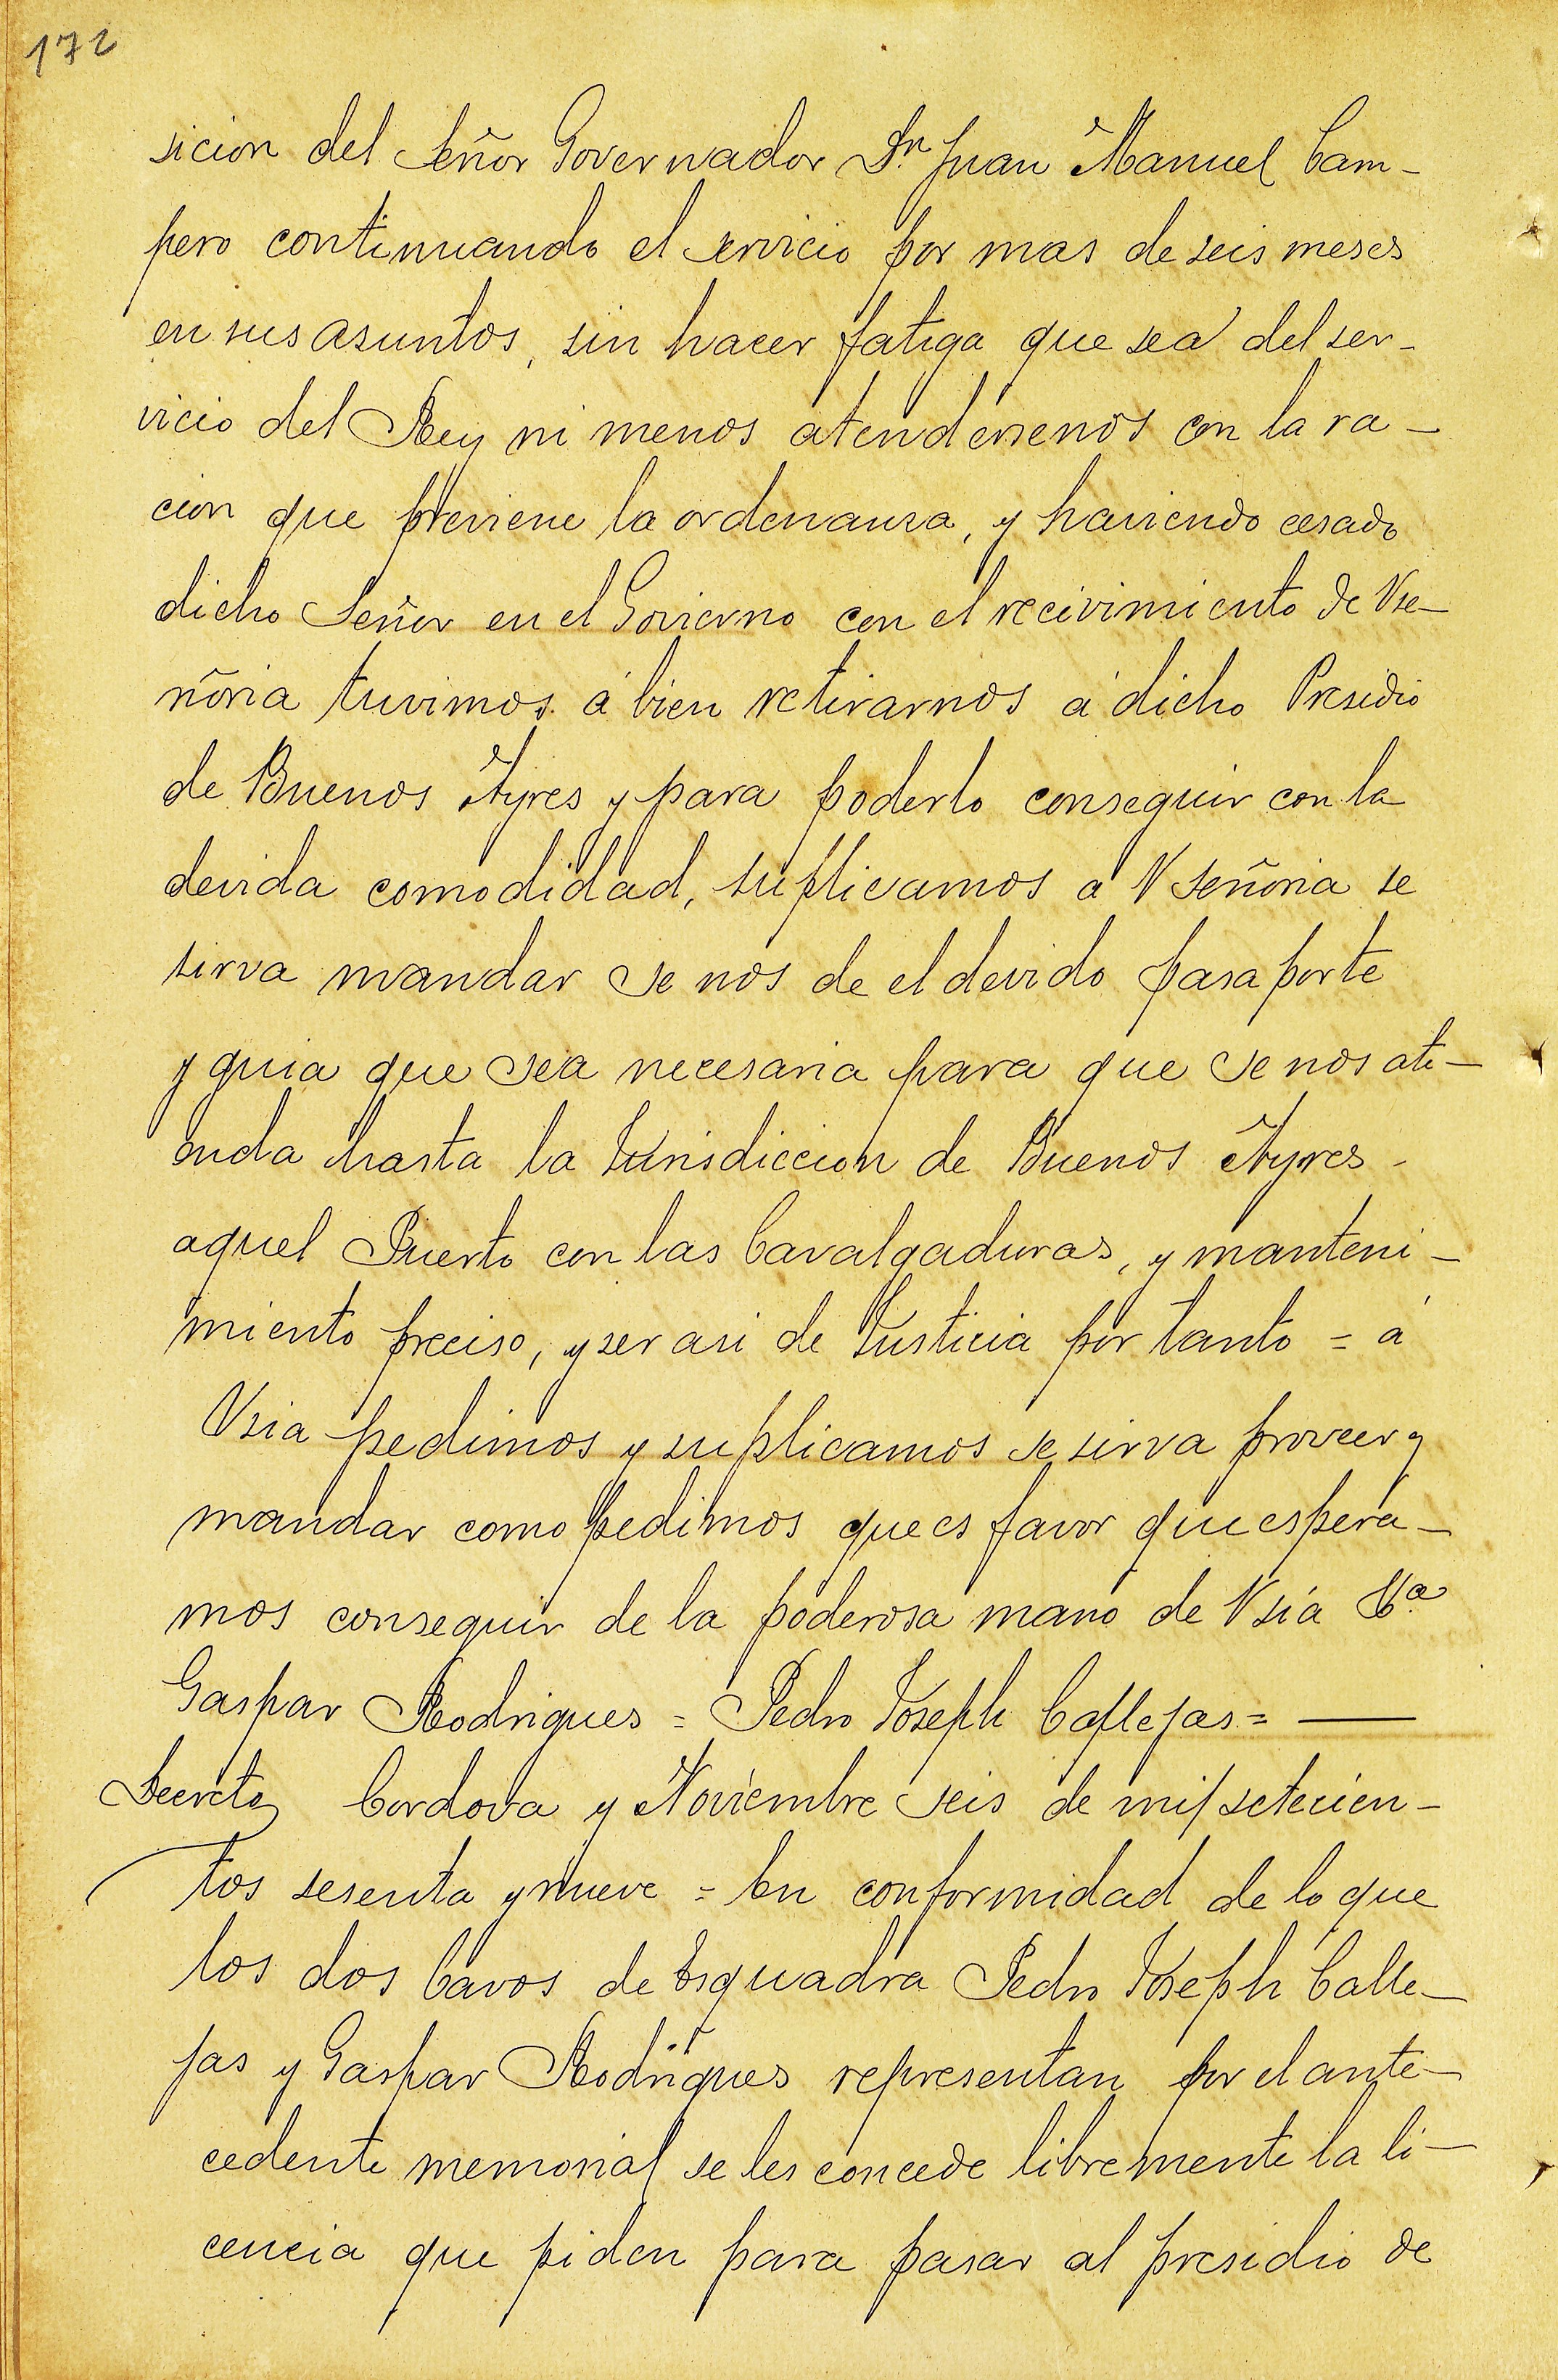 172
sicion del Señor Governador Dn Juan Manuel Cam-
pero continuando el servicio por mas de seis meses
en sus asuntos, sin hacer fatiga que sea del ser-
vicio del Rey ni menos atendersenos con la ra-
cion que previene la ordenanza, y haviendo cesado
dicho Señor en el Govierno con el recivimiento de Vse-
ñoria tuvimos á bien retirarnos á dicho Presidio
de Buenos Ayres y para poderlo conseguir con la
devida comodidad, suplicamos a V Señoria se
sirva mandar se nos de el devido pasaporte
y guia que sea necesaria para que se nos ati-
enda hasta la Jurisdiccion de Buenos Ayres -
aquel Puerto con las Cavalgaduras, y manteni-
miento preciso, y ser asi de Justicia por tanto = á
Vsia pedimos y suplicamos se sirva proveer y
mandar como pedimos que es favor que espera-
mos conseguir de la poderosa mano de Vsía &a
Gaspar Rodrigues = Pedro Joseph Callejas = —
Decreto Cordova y Noviembre seis de mil setecien-
tos sesenta y nueve = En conformidad de lo que
los dos Cavos de Esquadra Pedro Joseph Calle-
jas y Gaspar Rodrigues representan por el ante-
cedente memorial se les concede libremente la li-
cencia que piden para pasar al presidio de